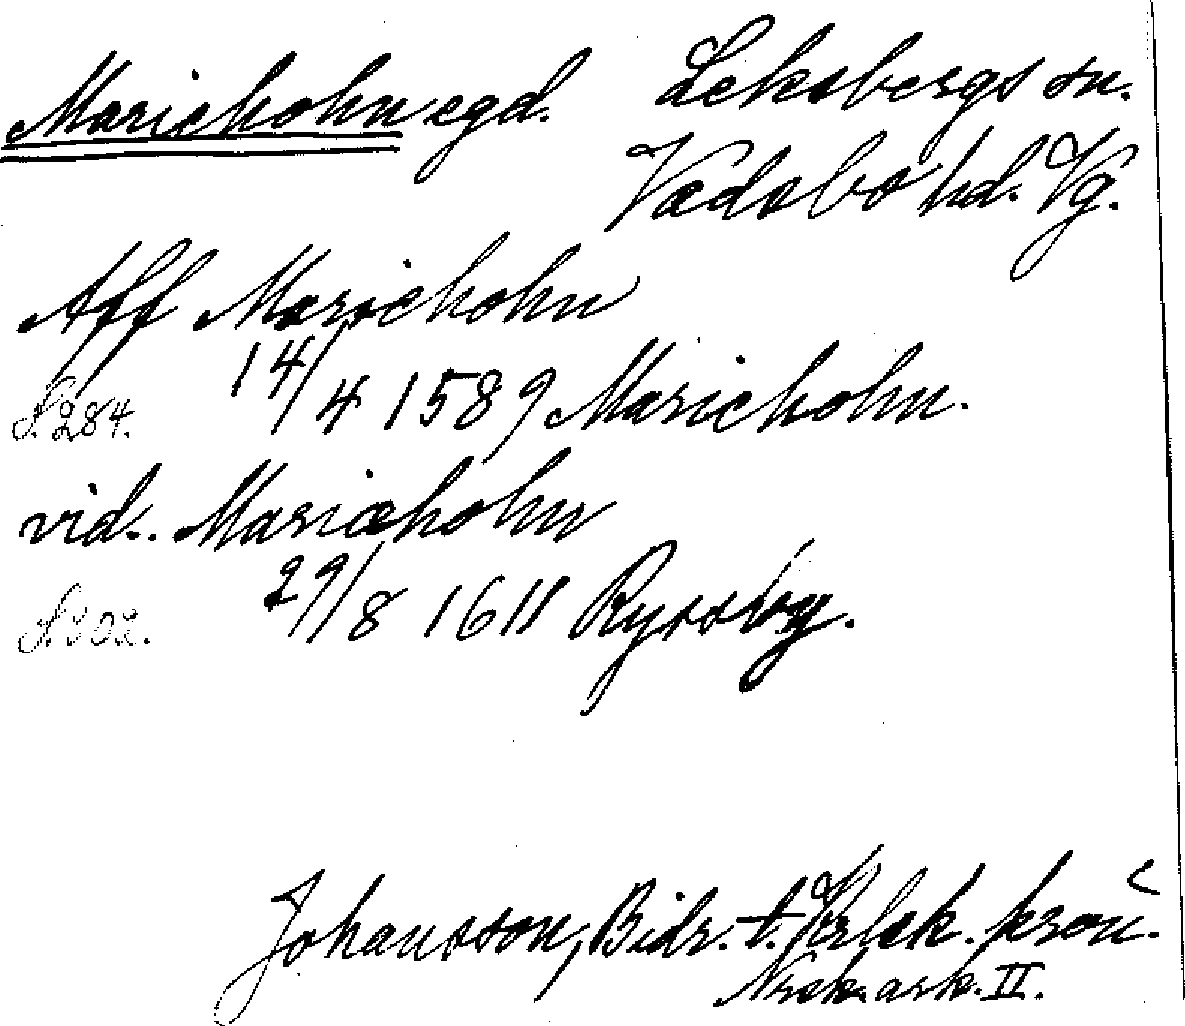 Marieholm egd. Leksbergs sn.
Vadsbo hd. Vg.
Aff Marieholm
S. 284. 14/4 1589 Marieholm.
vid. Marieholm
S. 302. 29/8 1611 Ryssby.
Johansson, Bidr. t. kron.
ark. II.